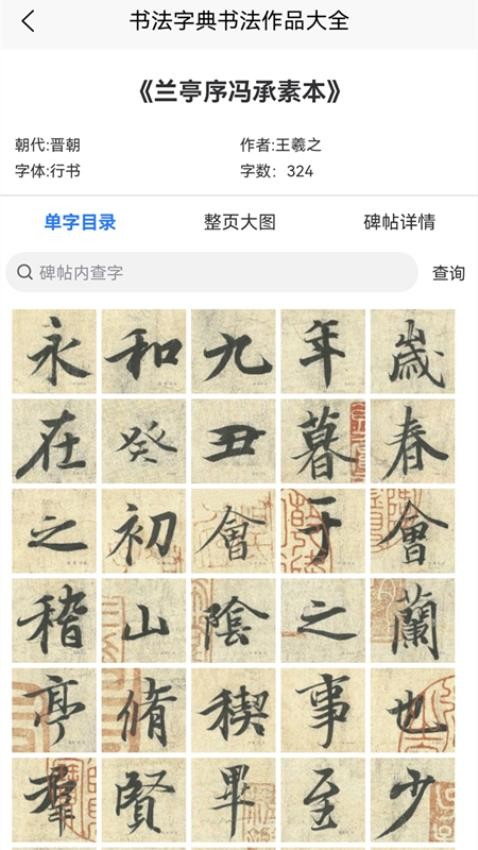 书法字典书法作品大全
《兰亭序冯承素本》
朝代:晋朝 作者:王羲之
字体:行书 字数：324
单字目录 整页大图 碑帖详情
碑帖内查字 查询
永 和 九 年 歲
在 癸 丑 暮 春
之 初 會 于 會
稽 山 陰 之 蘭
亭 脩 稧 事 也
羣 賢 畢 至 少